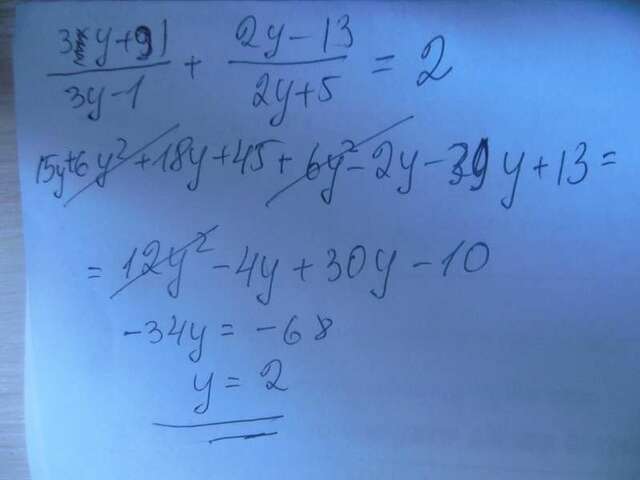 (3y+9)/(3y-1) + (2y-13)/(2y+5) = 2
15y+6y²+18y+45+6y²-2y-39y+13=
=12y²-4y+30y-10
-34y=-68
y=2